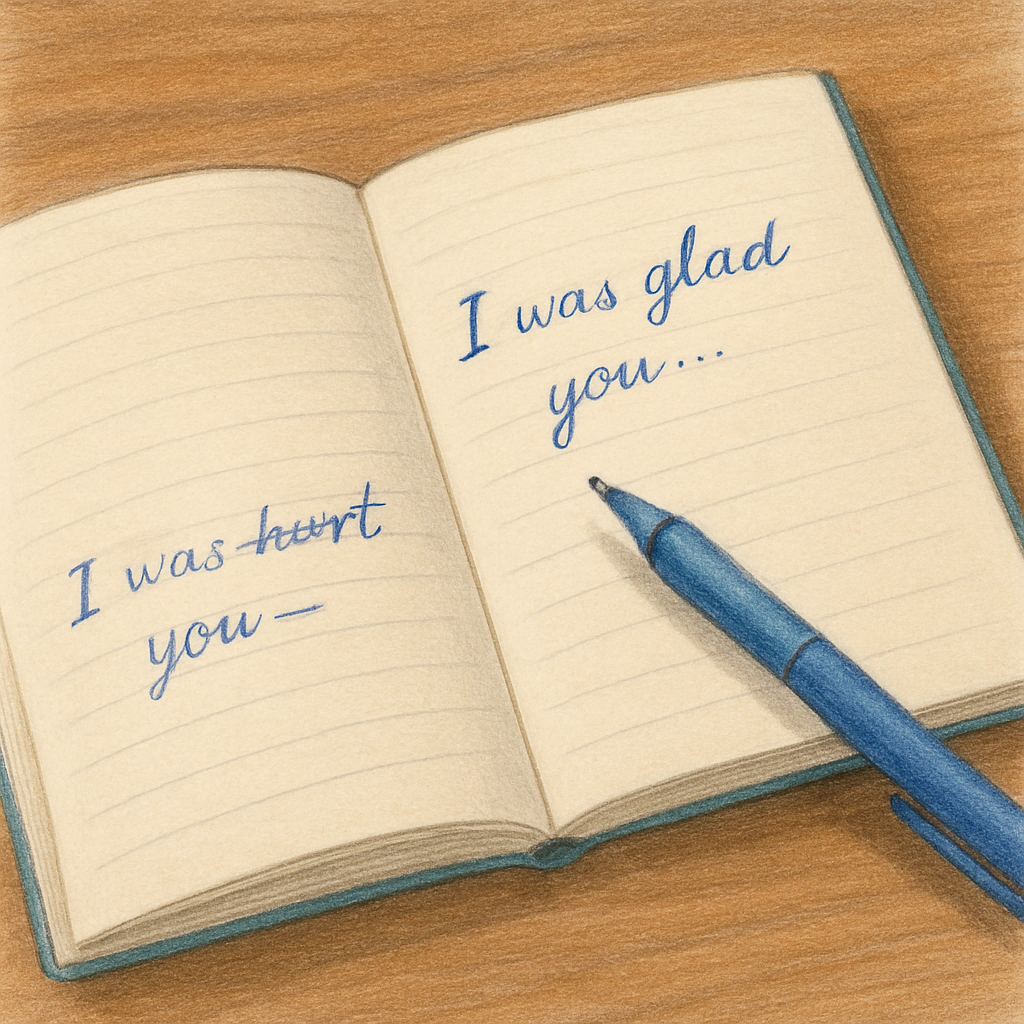 I was hurt
you —
I was glad
you...